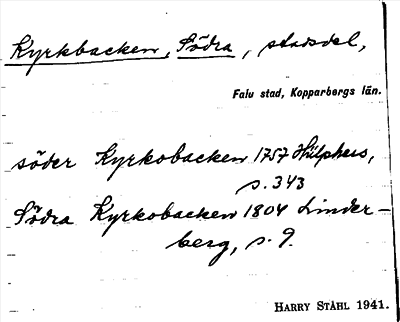 Kyrkbacken, Södra, stadsdel,
Falu stad, Kopparbergs län.
söder Kyrkobacken 1757 Hülphers,
s. 343
Södra Kyrkobacken 1804 Linder-
berg, s. 9.
HARRY STÅHL 1941.